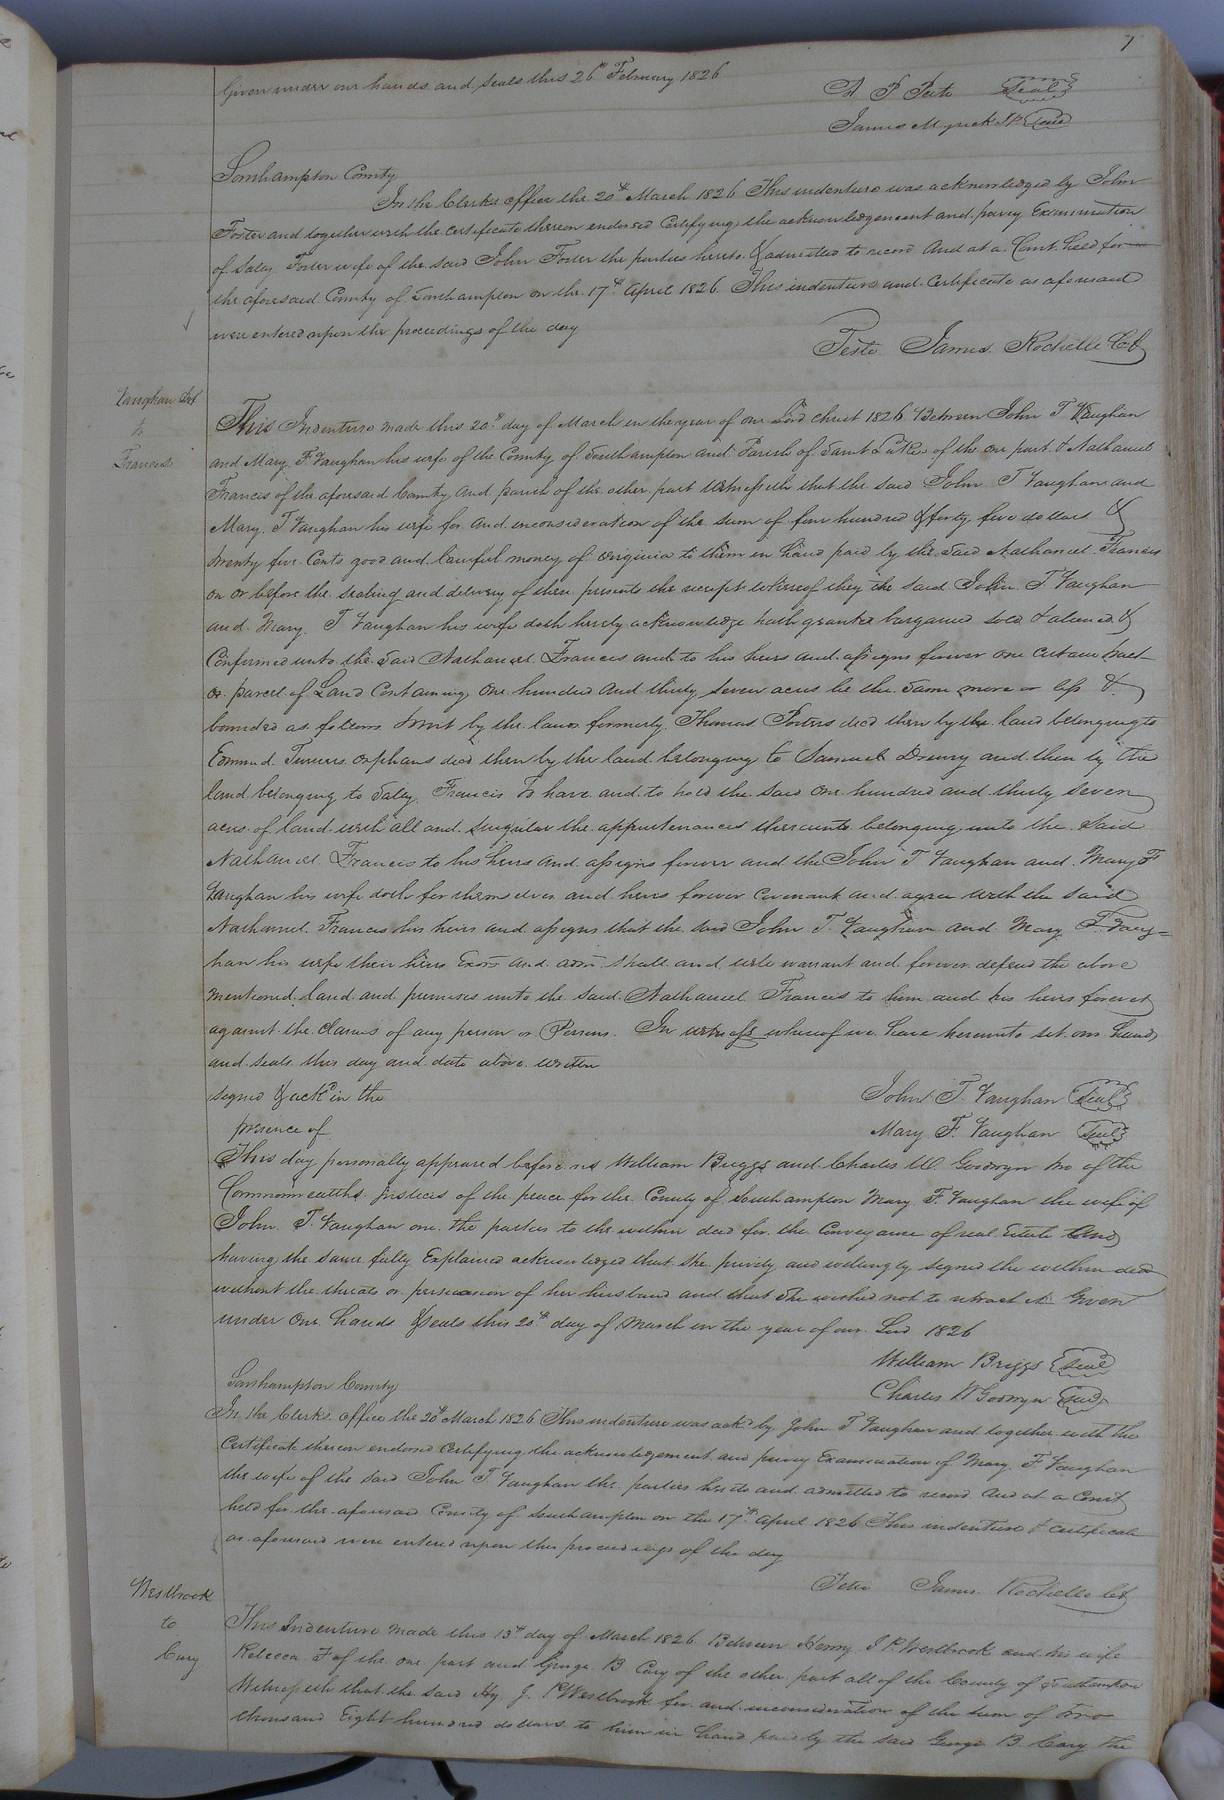 7
Given under our hands and seals this 26th February 1826
A P Peete Seal
James Myrick JP Seal
Southampton County
In the Clerks office the 20th March 1826 This indenture was acknowledged by John
Foster and together with the certificate thereon endorsed Certifying the acknowledgement and privy Examination
of Sally Foster wife of the said John Foster the parties hereto & admitted to record And at a Court held for
the aforesaid County of Southampton on the 17th April 1826 This indenture and Certificate as aforesaid
were entered upon the proceedings of the day
Teste James Rochelle Ck
Vaughan &
to
Francis
This Indenture made this 20th day of March in the year of our Lord Christ 1826 Between John T Vaughan
and Mary F. Vaughan his wife of the County of Southampton and Parish of Saint Lukes of the one part & Nathaniel
Francis of the aforesaid County and parish of the other part Witnesseth that the said John T Vaughan and
Mary T Vaughan his wife for and inconsideration of the sum of four hundred & forty five dollars &
twenty five Cents good and lawful money of virginia to them in hand paid by the said Nathaniel Francis
on or before the sealing and delivery of these presents the receipt whereof they the said John T. Vaughan
and Mary T Vaughan his wife doth hereby acknowledge hath granted bargained sold & aliened &
Confirmed unto the said Nathaniel Francis and to his heirs and assigns forever one certain tract
or parcel of Land Containing One hundred and thirty seven acres be the same more or less &
bounded as follows by the land formerly Thomas Porters decd then by the land belonging to
Edmund Turners orphans decd then by the land belonging to Samuel Drewry and then by the
land belonging to Sally Francis To have and to hold the said One hundred and thirty seven
acres of land with all and singular the appurtenances thereunto belonging unto the said
Nathaniel Francis to his heirs and assigns forever and the John T Vaughan and Mary F
Vaughan his wife doth for themselves and heirs forever covenant and agree with the said
Nathaniel Francis his heirs and assigns that the said John T. Vaughan and Mary F. Vaug=
han his wife their heirs Exors and adm shall and will warrant and forever defend the above
mentioned land and premises unto the said Nathaniel Francis to him and his heirs forever
against the claims of any person or Persons. In witness whereof we have hereunto set our hands
and seals this day and date above written
signed & ackd in the
presence of
John T. Vaughan Seal
Mary F. Vaughan Seal
This day personally appeared before us William Briggs and Charles W Goodwyn two of the
Commonwealths justices of the peace for the County of Southampton Mary F. Vaughan the wife of
John T. Vaughan one the parties to the within deed for the Conveyance of real Estate And
having the same fully Explained acknowledged that she privily and willingly signed the within deed
without the threats or persuasion of her husband and that she wished not to retract it Given
under our hands & seals this 20th day of March in the year of our Lord 1826
William Briggs Seal
Charles W Goodwyn Seal
Southampton County
In the Clerks office the 20th March 1826 This indenture was ackd by John T Vaughan and together with the
Certificate thereon endorsed Certifying the acknowledgement and privy Examination of Mary F Vaughan
the wife of the said John T. Vaughan the parties hereto and admitted to record And at a Court
held for the aforesaid County of Southampton on the 17th April 1826 This indenture & Certificate
as aforesaid were entered upon the proceedings of the day
Teste James Rochelle Ck
Westbrook
to
Cary
This Indenture made this 13th day of March 1826 Between Henry J P Westbrook and his wife
Rebecca F of the one part and George B Cary of the other part all of the County of Southampton
Witnesseth that the said Hy J. P Westbrook for and inconsideration of the sum of two
thousand Eight hundred dollars to him in hand paid by the said George B. Cary the